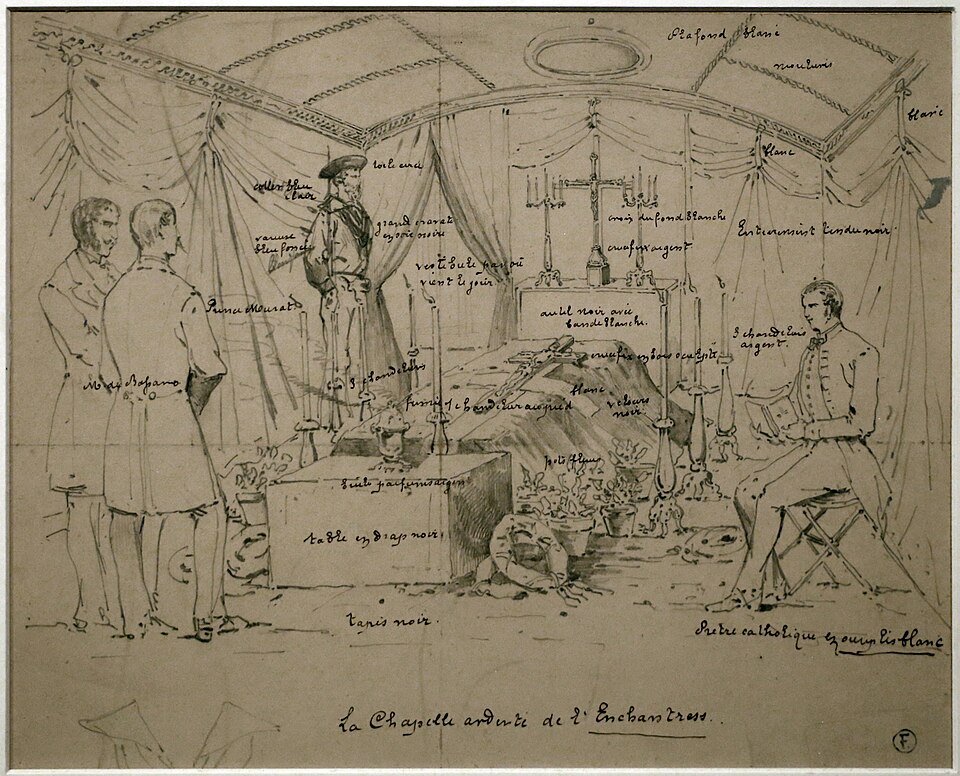 Plafond blanc
moulures
blanc
blanc
toile cirée
collet bleu
clair
grand cravate
en soie noire
vareuse
bleu foncé
croix du fond blanche
crucifix argent
Entièrement tendu noir
vestibule par où
vient le jour
autel noir avec
bande blanche.
Prince Murat
3 chandeliers
argent.
crucifix en bois sculpté
M. de Bassano
3 chandeliers
blanc
velours
noir
pots fleurs
brûle parfums argent
table en drap noir
tapis noir.
Prêtre catholique en surplis blanc
La Chapelle ardente de l'Enchantress.
F